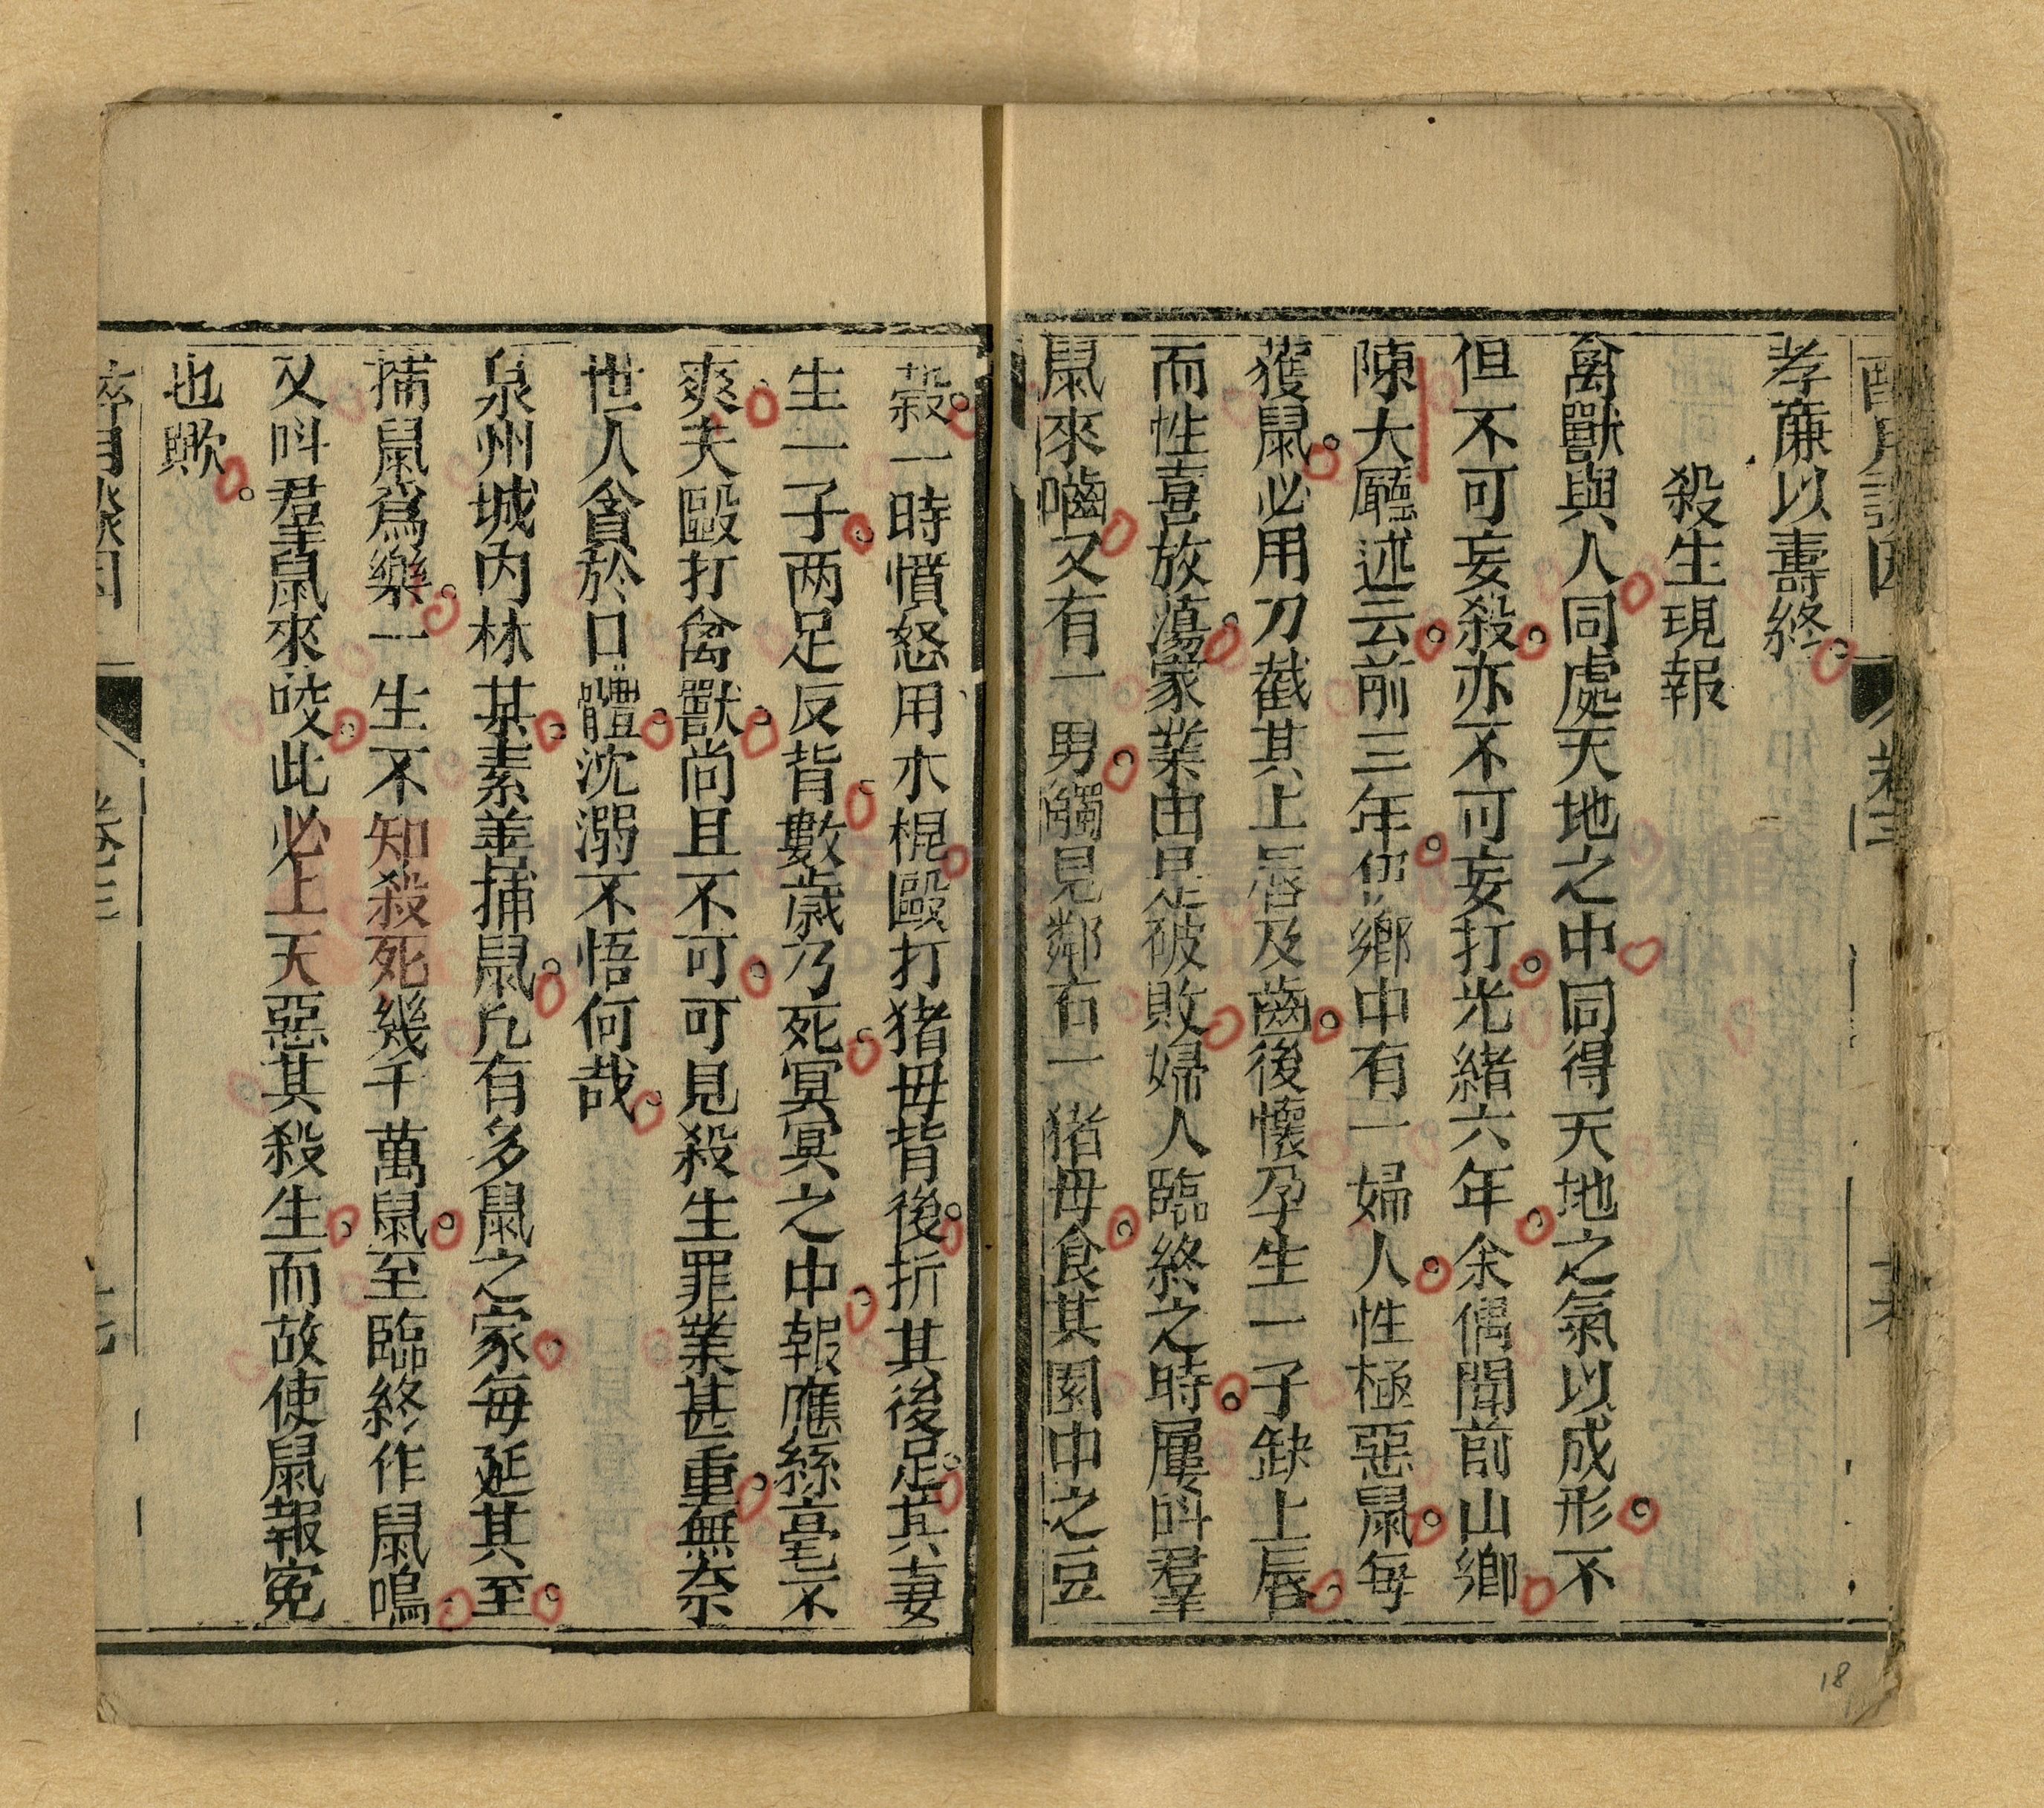 孝廉以壽終
殺生現報
禽獸與人同處天地之中同得天地之氣以成形不
但不可妄殺亦不可妄打光緒六年余偶聞前山鄉
陳大廳述云前三年伊鄉中有一婦人性極惡鼠每
獲鼠必用刀截其上唇及齒後懷孕生一子缺上唇
而性喜放蕩家業由是破敗婦人臨終之時屢呌羣
鼠來嚙又有一男觸見鄰右一猪母食其園中之豆
穀一時憤怒用木棍毆打猪母背後折其後足其妻
生一子两足反背數歲乃死冥冥之中報應絲毫不
爽夫毆打禽獸尚且不可可見殺生罪業甚重無奈
世人貪於口體沈溺不悟何哉
泉州城內林某素善捕鼠凡有多鼠之家每延其至
捕鼠爲樂一生不知殺死幾千萬鼠至臨終作鼠鳴
又呌羣鼠來咬此必上天惡其殺生而故使鼠報寃
也歟
卷三
18